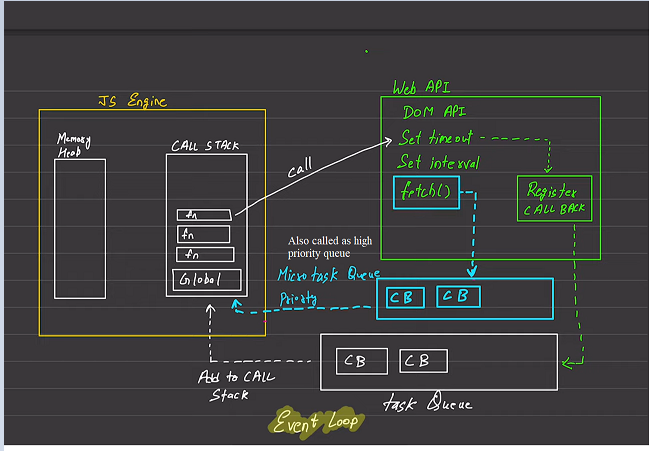 JS Engine
Memory
Heap
CALL STACK
fn
fn
fn
Global
call
Web API
DOM API
Set timeout
Set interval
fetch()
Register
CALL BACK
Also called as high
priority queue
Microtask Queue
Priority
CB CB
CB CB
Add to CALL
Stack
task Queue
Event Loop